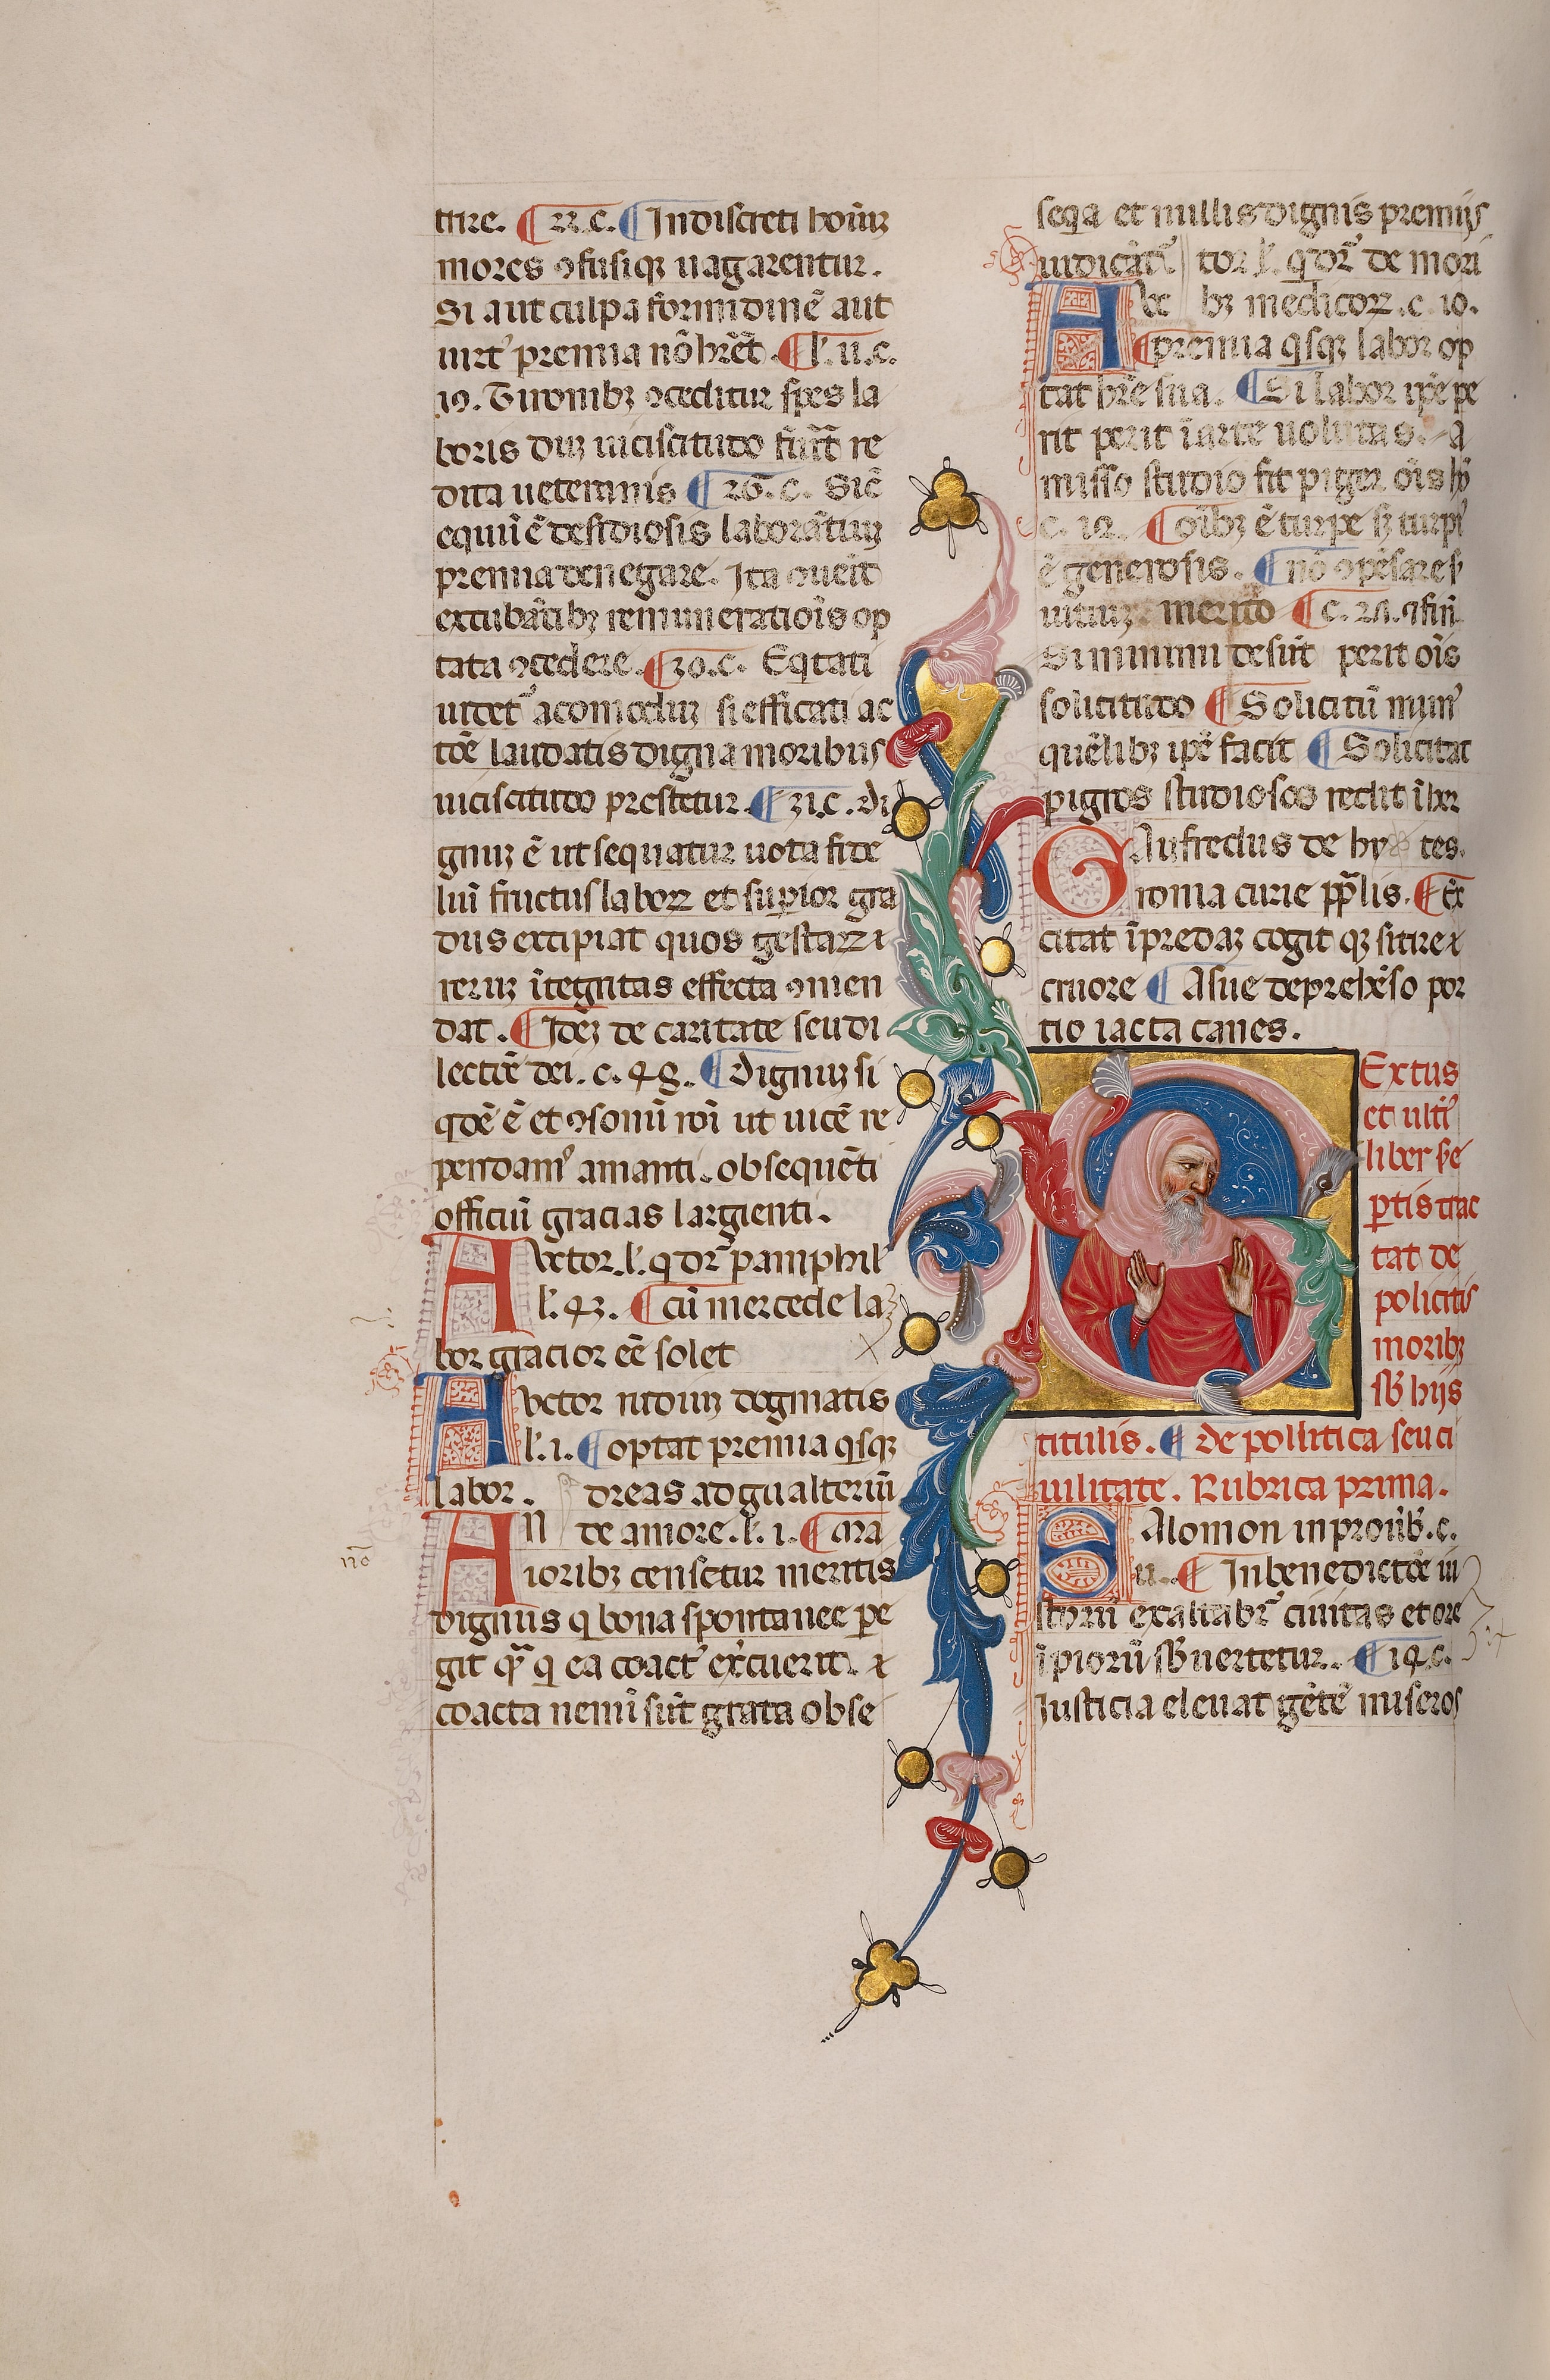 tire. ¶ 22. c. ¶ Indiscreti hoīuꝫ
mores ꝯfusiqꝫ uagarentur.
Si aut culpa formidinē aut
uirtꝰ premia nō hr̄et. ¶ l'. ii. c.
19. Tironibꝫ ꝯceditur spes la
boris diu uicisitudo
dita ueteranis ¶ 26. c. Sic̄
equū ē desidiosis laborātiuꝫ
premia denegare. Ita ꝯueīt
excubātibꝫ remuneratiōis op
tata ꝯcedere. ¶ 30. c. Eqͥtati
uidetᷣ acomoduꝫ si efficati ac
tōe laudatis digna moribus
uiciscitudo prestetur. ¶ 31. c. di
gnuꝫ ē ut sequatur uota fide
liū fructus laborꝝ et superior gra
dus excipiat quos gestaꝝ ⁊
reruꝫ ītegritas effecta ꝯmen
dat. ¶ Idēꝫ de caritate seu di
lectōe dei. c. 48. ¶ Dignuꝫ si
qͥdē ē et ꝯsonū rōi ut uicē re
pendamꝰ amanti. obsequēti
officiū gracias largienti.
Auctor. l'. qͥ dr̄ pamphil'
l'. 43. ¶ cū mercede la
bor gracior eē̄ solet
Auctor nouuꝫ dogmatis
l'. i. ¶ optat premia qͥsqꝫ
labor. dreas ad gualteriū
An de amore. l'. i. ¶ Ma
ioribꝫ censetur meritis
dignus qͥ bona spontanee ꝑe
git qͣꝫ qͥ ea coactꝰ ex̄cuerit. ⁊
coacta nemī sūt grata obse
seqͥa et nullis dignis premijs
iudicātᷣ tor l'. qͥ dr̄ de mori
Auc bꝫ medicorꝝ. c. 10.
¶ premia qͥsqꝫ labor op
tat hr̄e sua. ¶ Si labor ip̄e pe
rit perit ī arte uolūtas. A
misso studio fit piger oīs hō
c. 12. ¶ oībꝫ ē turpe sꝫ turpiꝰ
ē generosis. ¶ nō ꝯpēsare
merito ¶ c. 24.
Si munera desūt perit oīs
solicitudo ¶ Solicitū munꝰ
quēlibꝫ ip̄e facit ¶ Solicitat
pigros studiosos reddit
Gaufredus de hy tes.
roma curie pp̄lis. ¶ Ex
citat ī predaꝫ cogit qꝫ sitire ⁊
cruore ¶ Asue deprehēso por
tio iacta canes.
Sextus
et ultīꝰ
liber
ꝑtis trac
tat de
politicis
moribꝫ
sb' hijs
titulis. ¶ de pollitica seu ci
uilitate. Rubrica prima.
Salomon in prou̅b'. c.
ii. ¶ In benedictōe iu
storū exaltabr̄ ciuitas et ore
īpiorū sb'uertetur. ¶ 14. c.
Iusticia eleuat gētē miseros
nō